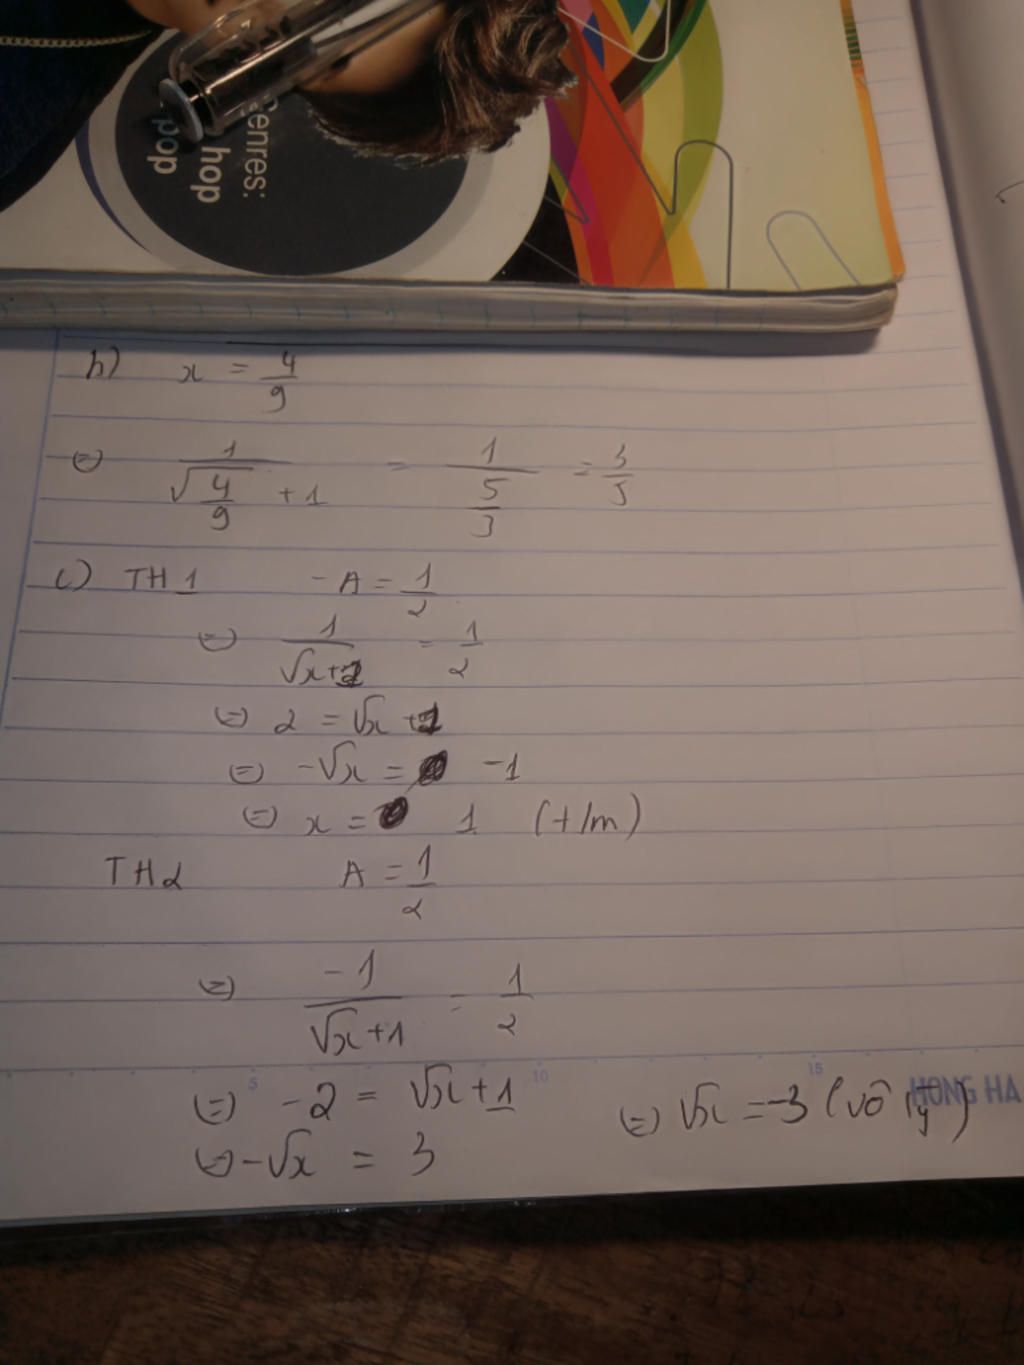 Genres:
hop
pop
b) x = 4/9
⇔ 1/(√(4/9) + 1) = 1/(5/3) = 3/5
c) TH1 - A = 1/2
⇔ 1/(√x+1) = 1/2
⇔ 2 = √x + 1
⇔ -√x = -1
⇔ x = 1 (t/m)
TH2 A = 1/2
⇔ -1/(√x+1) = 1/2
⇔ -2 = √x+1 ⇔ √x = -3 (vô lý)
⇔ -√x = 3
5 10 15
HONG HA